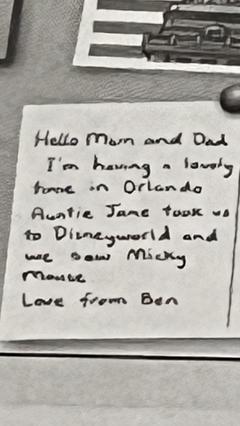 Hello Mom and Dad
I'm having a lovely
time in Orlando
Auntie Jane took us
to Disneyworld and
we saw Micky
Mouse.
Love from Ben